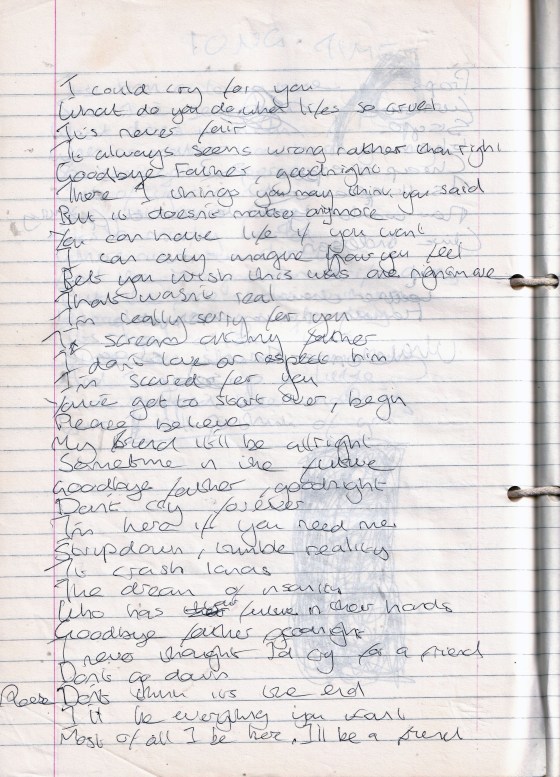 I could cry for you
What do you do when lifes so cruel
It's never fair
It always seems wrong rather than right
Goodbye Father, goodnight
There things you may think you said
But it doesn't matter anymore
You can hate life if you want
I can only imagine how you feel
Bets you wish this was one nightmare
Thats wasn't real
I'm really sorry for you
I scream at my father
I don't love or respect him
I'm scared for you
You've got to start over, begin
Please believe
My friend it'll be allright
Sometime n the future
Goodbye father, goodnight
Don't cry forever
I'm here if you need me
Stripdown, tumble reality
It crash lands
The dream of insanity
Who has future n their hands
Goodbye father goodnight
I never thought I'd cry for a friend
Dont go down
Please Dont think its the end
I'll be everything you want
Most of all I be here, I'll be a friend